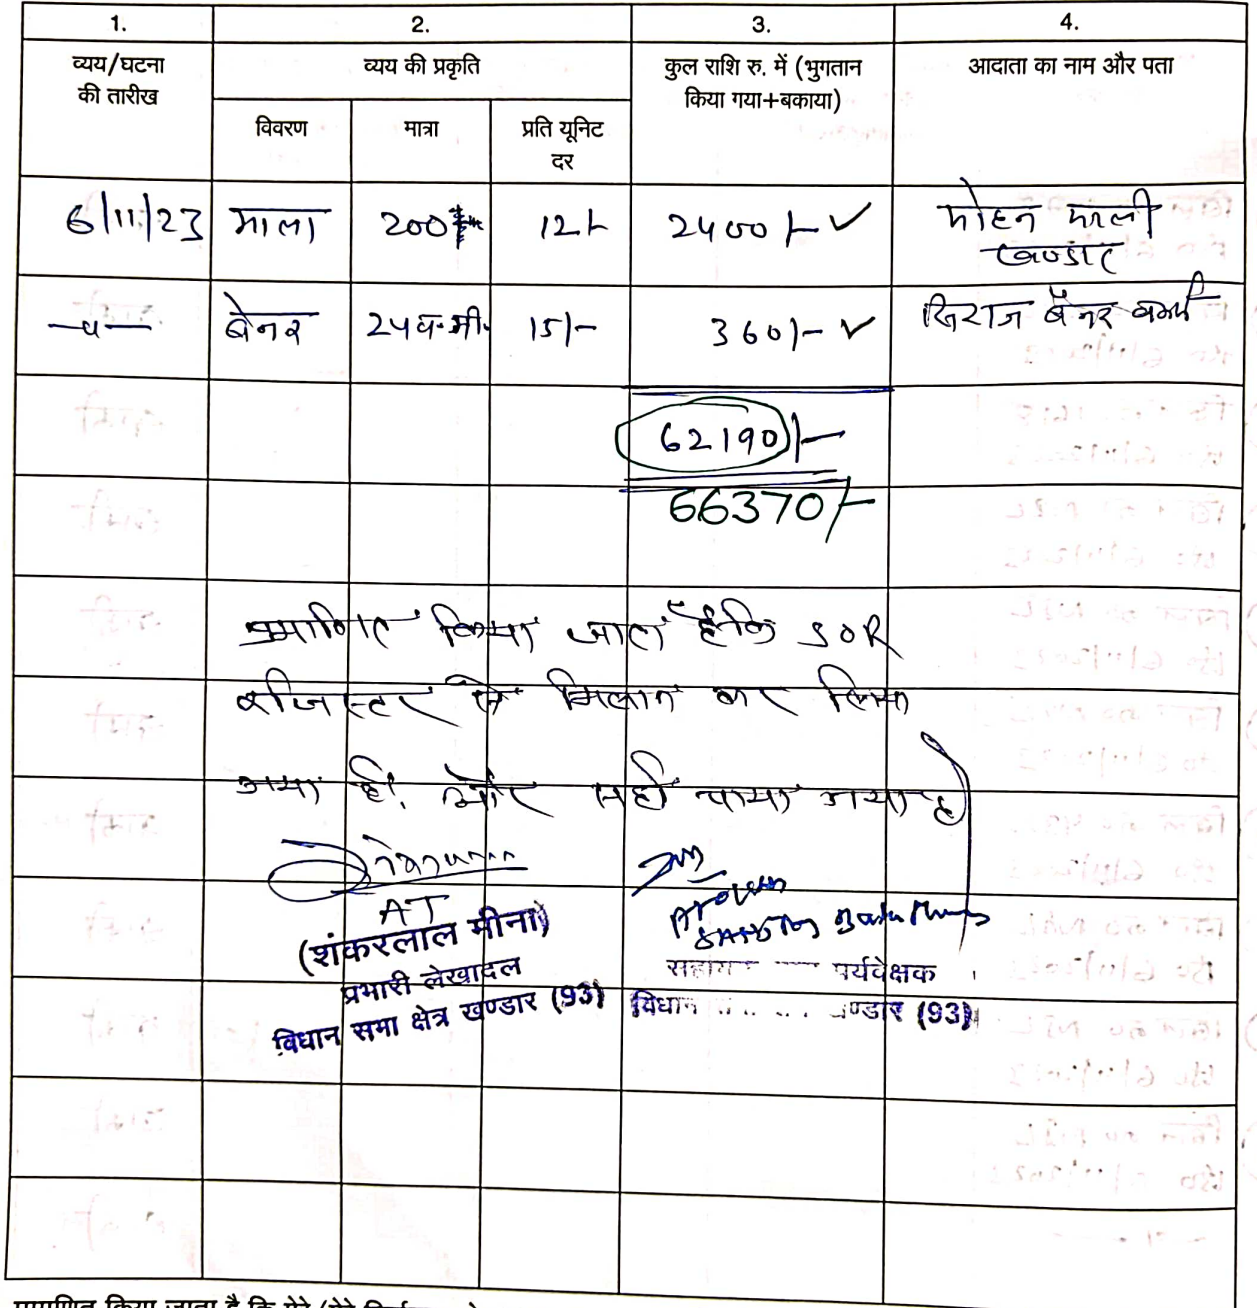 1. 2. 3. 4.
व्यय/घटना की तारीख
व्यय की प्रकृति
कुल राशि रु. में (भुगतान किया गया+बकाया)
आदाता का नाम और पता
विवरण मात्रा प्रति यूनिट दर
6/11/23 माला 200 12/- 2400/- ✓ मोहन माली
खण्डार
—"— बेनर 24 व.मी. 15/- 360/- ✓ बैनर
62190/-
66370/-
प्रमाणित किया जाता है कि SOR
रजिस्टर से मिलान कर लिया
गया है. और सही पाया गया है
AT
(शंकरलाल मीना)
प्रभारी लेखादल
विधान सभा क्षेत्र खण्डार (93)
सहायक पर्यवेक्षक
विधान खण्डार (93)
प्रमाणित किया जाता है कि मेरे